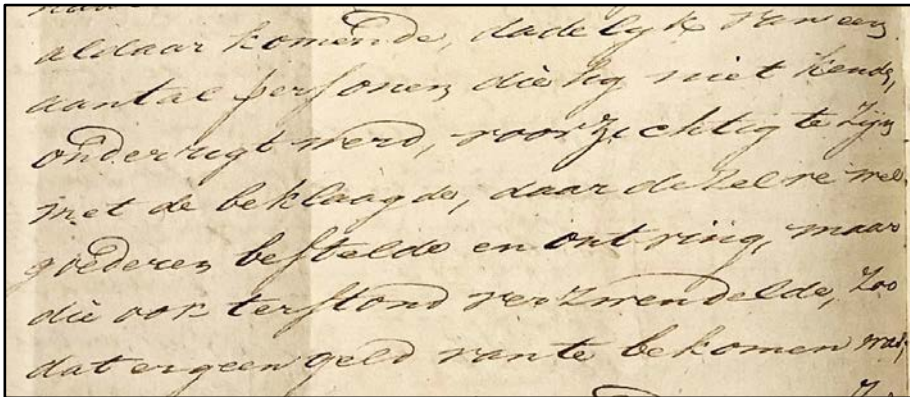 aldaar komende, dadelyk van een
aantal persoonen die hy niet kende,
onderrigt werd, voorzichtig te zijn
met de beklaagde, daar dezelve wel
goederen bestelde en ontving, maar
die ook terstond verzwendelde, zoo
dat er geen geld van te bekomen was,